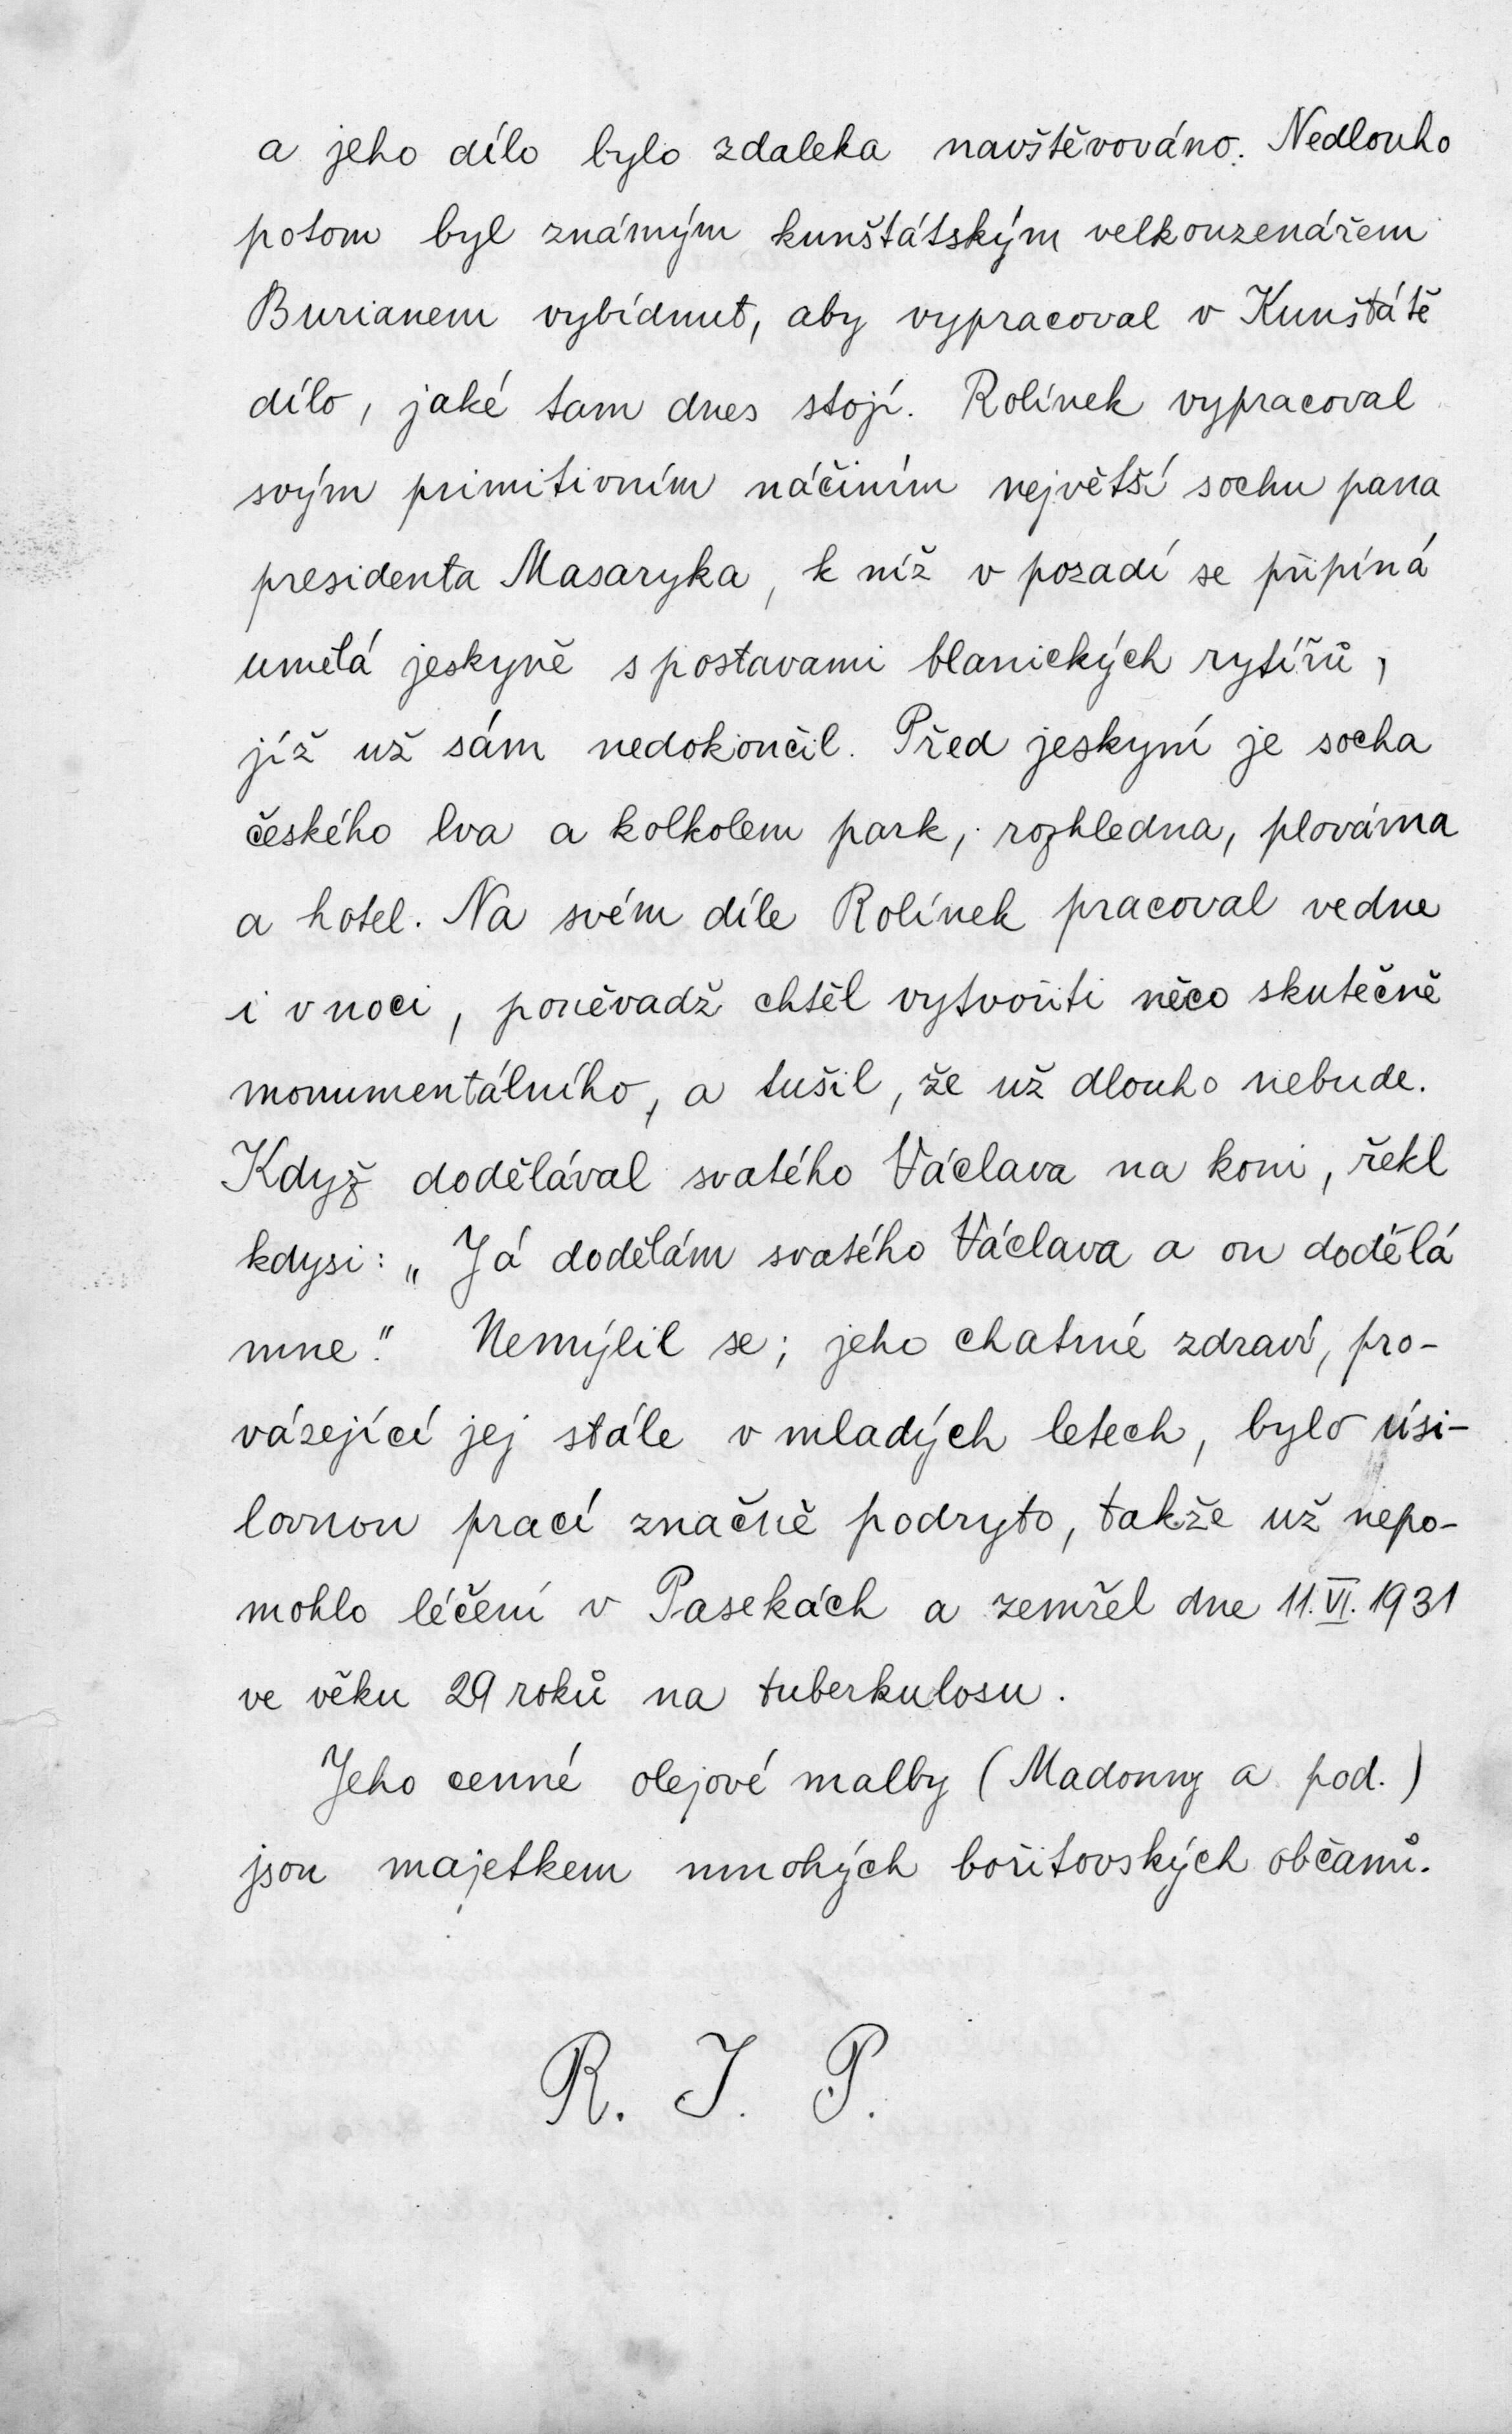 a jeho dílo bylo zdaleka navštěvováno. Nedlouho
potom byl známým kunštátským velkouzenářem
Burianem vybídnut, aby vypracoval v Kunštátě
dílo, jaké tam dnes stojí. Rolínek vypracoval
svým primitivním náčiním největší sochu pana
presidenta Masaryka, k níž v pozadí se připíná
umělá jeskyně s postavami blanických rytířů,
jíž už sám nedokončil. Před jeskyní je socha
českého lva a kolkolem park, rozhledna, plovárna
a hotel. Na svém díle Rolínek pracoval ve dne
i v noci, poněvadž chtěl vytvořiti něco skutečně
monumentálního, a tušil, že už dlouho nebude.
Když dodělával svatého Václava na koni, řekl
kdysi: „Já dodělám svatého Václava a on dodělá
mne." Nemýlil se; jeho chatrné zdraví, pro-
vázející jej stále v mladých letech, bylo úsi-
lovnou prací značně podryto, takže už nepo-
mohlo léčení v Pasekách a zemřel dne 11. VI. 1931
ve věku 29 roků na tuberkulosu.
Jeho cenné olejové malby (Madonny a pod.)
jsou majetkem mnohých bořitovských občanů.
R. I. P.